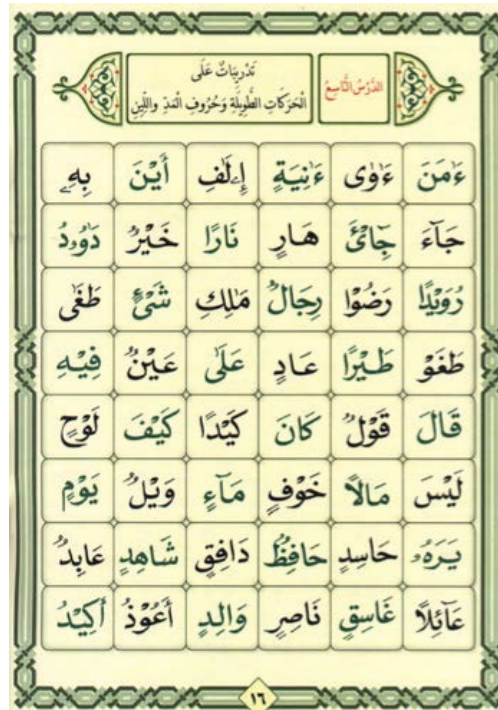 الدَّرْسُ التَّاسِعُ
تَدْرِيبَاتٌ عَلَى
الْحَرَكَاتِ الطَّوِيلَةِ وَحُرُوفِ الْمَدِّ وَاللِّينِ
ءَامَنَ ءَاوٰى ءَانِيَةٍ إِۦلٰفِ أَيْنَ بِهِۦ
جَآءَ جِایْٓءَ هَارٍ نَارًا خَيْرٌ دَاوُۥدُ
رُوَيْدًا رَضُوْا رِجَالٌ مٰلِكِ شَیْءٍ طَغٰى
طَغَوْ طَيْرًا عَادٍ عَلٰى عَيْنٌ فِيْهِ
قَالَ قَوْلٌ كَانَ كَيْدًا كَيْفَ لَوْحٍ
لَيْسَ مَالًا خَوْفٍ مَآءٍ وَيْلٌ يَوْمٍ
يَرَهُۥ حَاسِدٍ حَافِظٌ دَافِقٍ شَاهِدٍ عَابِدٌ
عَآئِلًا غَاسِقٍ نَاصِرٍ وَالِدٍ أَعُوْذُ أَكِيْدُ
١٦